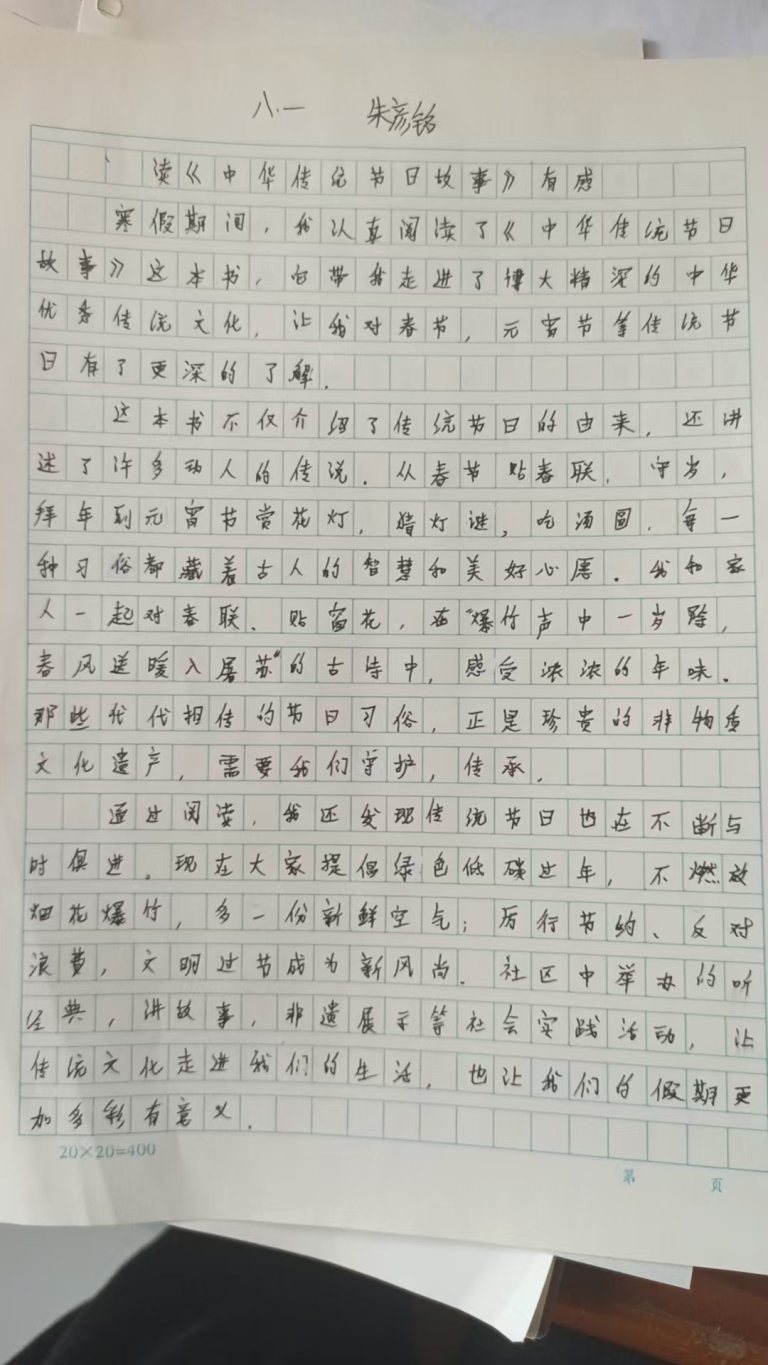 八.一 朱彦铭
读《中华传统节日故事》有感
寒假期间，我认真阅读了《中华传统节日
故事》这本书，它带我走进了博大精深的中华
优秀传统文化，让我对春节，元宵节等传统节
日有了更深的了解.
这本书不仅介绍了传统节日的由来，还讲
述了许多动人的传说.从春节贴春联，守岁，
拜年到元宵节赏花灯，猜灯谜，吃汤圆.每一
种习俗都藏着古人的智慧和美好心愿.我和家
人一起对春联.贴窗花，在“爆竹声中一岁除，
春风送暖入屠苏”的古诗中，感受浓浓的年味.
那些代代相传的节日习俗，正是珍贵的非物质
文化遗产，需要我们守护，传承.
通过阅读，我还发现传统节日也在不断与
时俱进。现在大家提倡绿色低碳过年，不燃放
烟花爆竹，多一份新鲜空气；厉行节约、反对
浪费，文明过节成为新风尚.社区中举办的听
经典，讲故事，非遗展示等社会实践活动，让
传统文化走进我们的生活，也让我们的假期更
加多彩有意义.
20×20=400
第 页